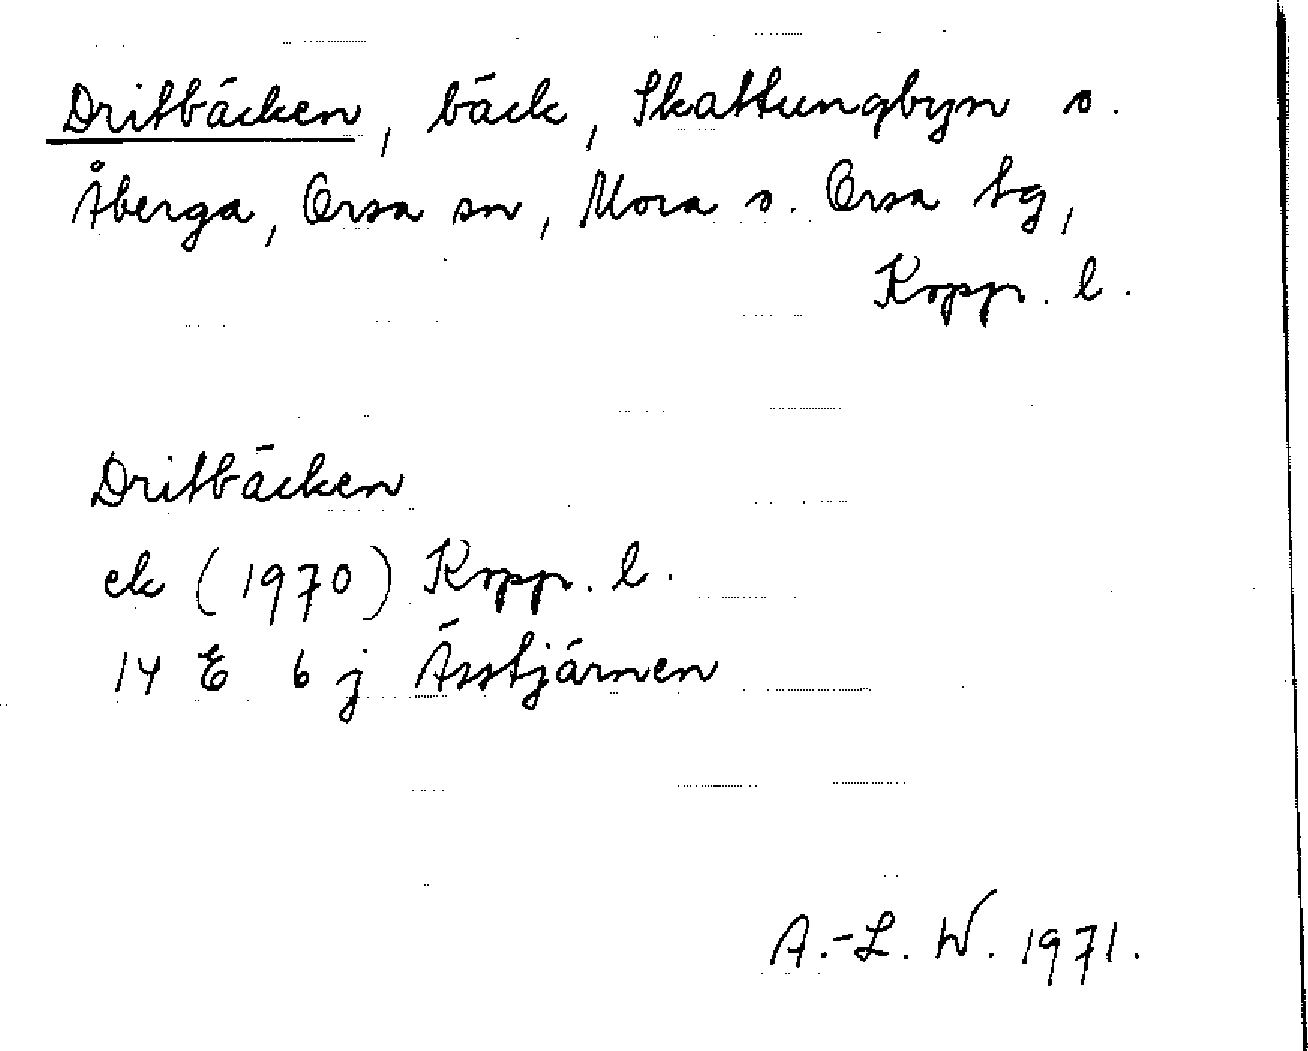 Dritbäcken, bäck, Skattungbyn o.
Åberga, Orsa sn, Mora o. Orsa tg,
Kopp. l.
Dritbäcken
ek (1970) Kopp. l.
14 E 6 j Ässtjärnen
A.-L. W. 1971.